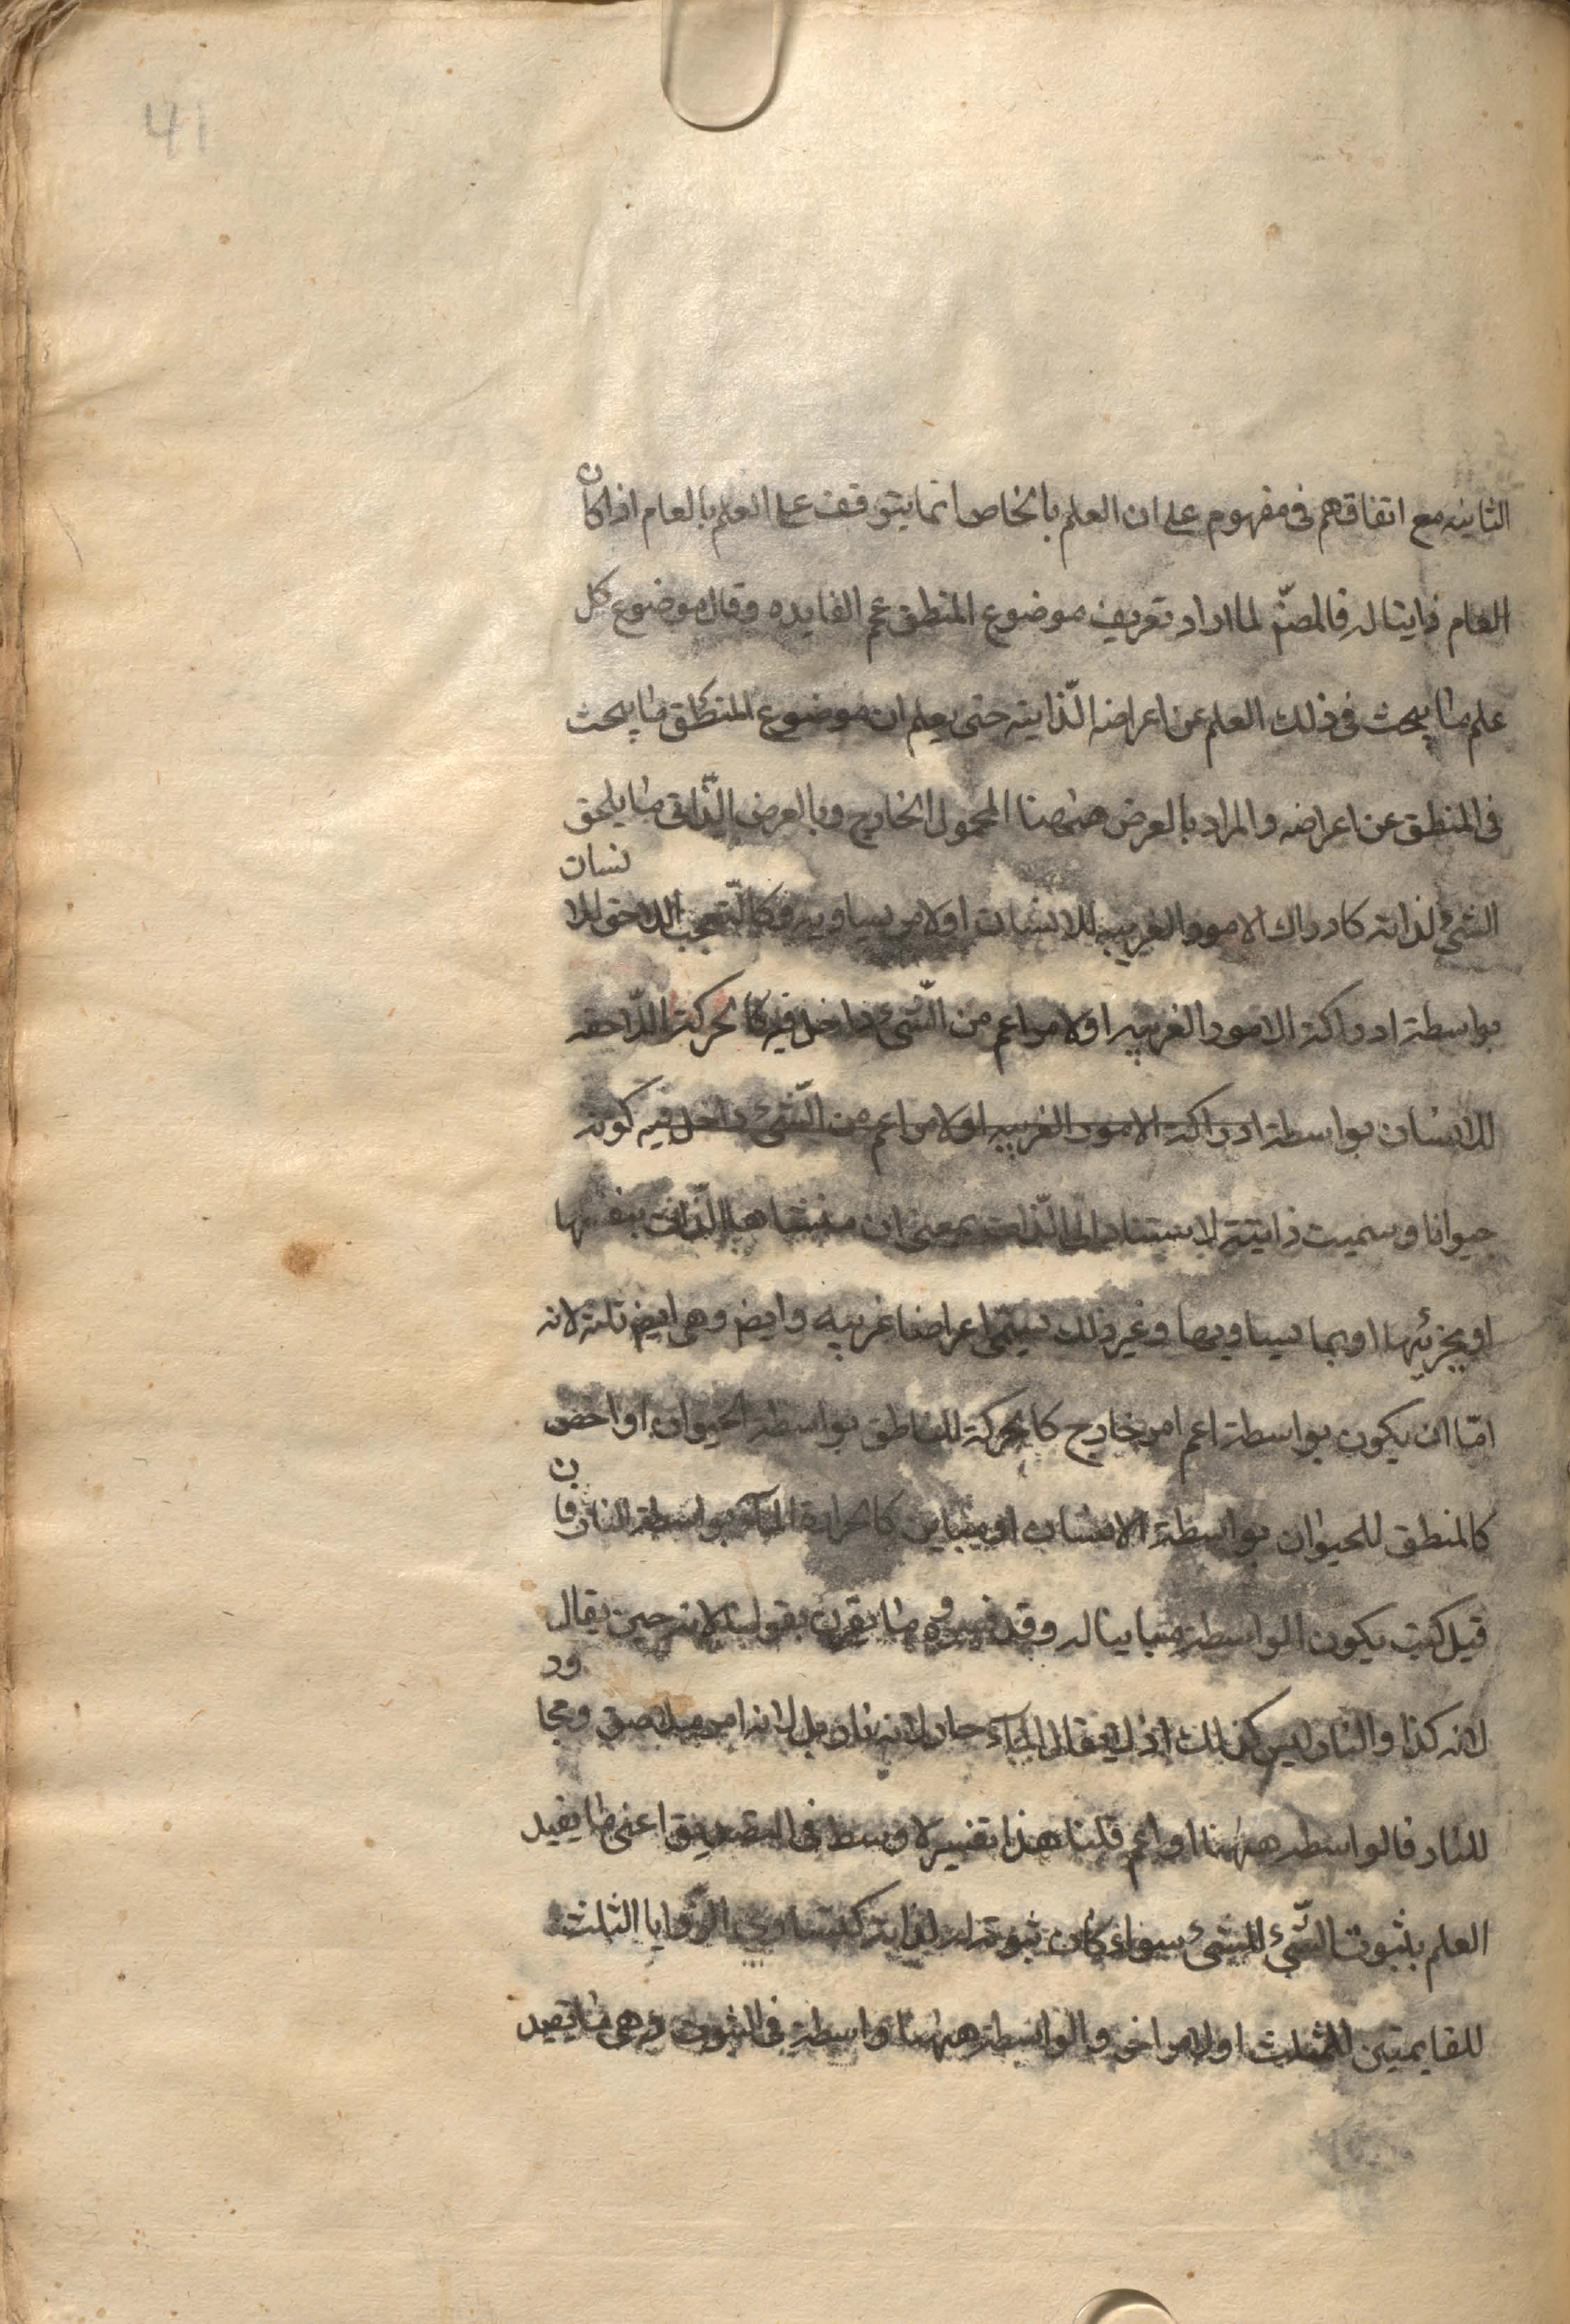 41
الثانيه مع اتفاقهم فى مفهوم على ان العلم بالخاص انما يتوقف على العلم بالعام اذا كان
العام ذايتا له فالمصنّ لما اراد تعريف موضوع المنطق عم الفايده وقال موضوع كل
علم ما يبحث فى ذلك العلم عن اعراضه الذّايته حتى يعلم ان موضوع المنطق ما يبحث
فى المنطق عن اعراضه والمراد بالعرض ههنا المحمول الخارج وبالعرض الذّاتى ما يلحق
الشئ لذاته كادراك الامور الغريبه للانسان او لامر يساويه كالتّعجب اللاحق للانسان
بواسطة ادراكه الامور الغريبه او لامر اعم من الشّئ داخل فيه كالحركة اللّاحقه
للانسان بواسطة ادراكه الامور الغريبه او لامر اعم من الشّئ داخل فيه كونه
حيوانا وسميت ذايتة لاستنادها الى الذّات بمعنى ان منشاها الذّات بنفسها
او بجزئها او بما يساويها وغير ذلك يسمّى اعراضا غريبه وايض وهى ايض ثلثة لانه
امّا ان يكون بواسطة اعم امر خارج كالحركة للناطق بواسطة الحيوان او اخص
كالمنطق للحيوان بواسطة الانسان او مباين كالحرارة المآء بواسطة النار فان
قيل كيف يكون الواسطة مباينا له وقد فسروه ما يقرن بقولنا لانه حين يقال
لانه كذا والنار ليس كذلك اذ لا يقال المآء حار لانه نار بل لانه امر ملاصق ومجاور
للنار فالواسطه ههنا اواعم قلنا هذا تفسير لاوسط فى التصديق اعنى ما يفيد
العلم بثبوت الشّئ للشئ سواء كان ثبوته له لذاته كتساوى الزّوايا الثلث
للقايمتين للمثلث او لامر اخر والواسطة ههنا واسطة فى الثبوت وهى ما يفيد